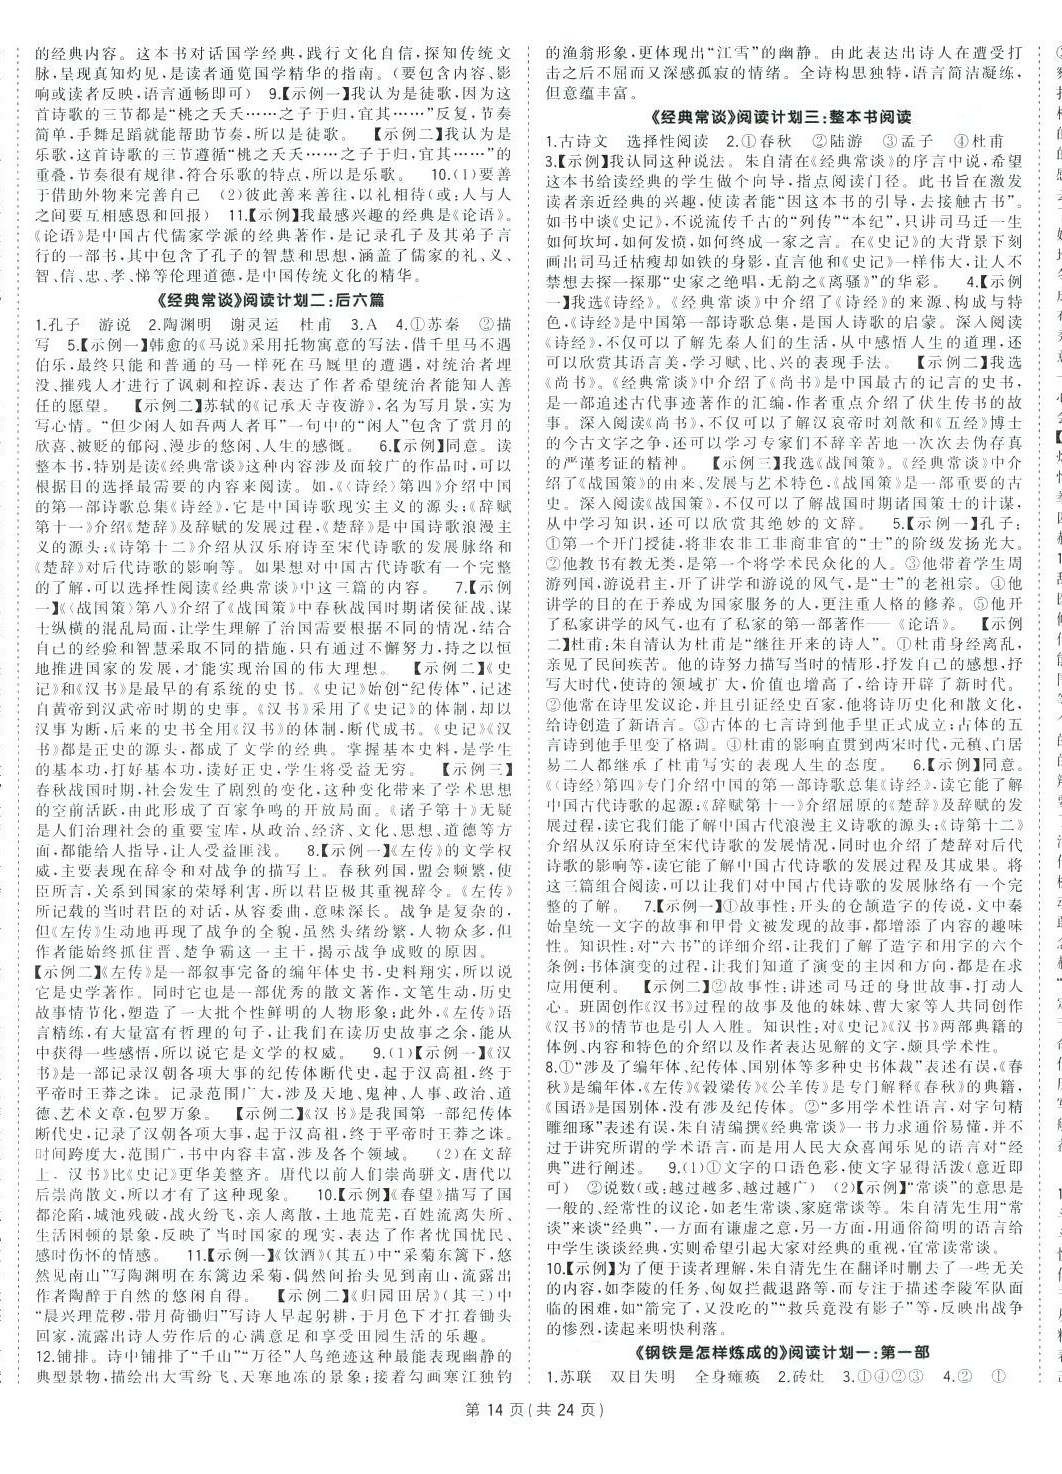 的经典内容。这本书对话国学经典，践行文化自信，探知传统文
脉，呈现真知灼见，是读者通览国学精华的指南。(要包含内容、影
响或读者反映，语言通畅即可)　9.【示例一】我认为是徒歌，因为这
首诗歌的三节都是“桃之夭夭……之子于归，宜其……”反复，节奏
简单，手舞足蹈就能帮助节奏，所以是徒歌。【示例二】我认为是
乐歌，这首诗歌的三节遵循“桃之夭夭……之子于归，宜其……”的
重叠，节奏很有规律，符合乐歌的特点，所以是乐歌。　10.(1)要善
于借助外物来完善自己　(2)彼此善来善往，以礼相待(或：人与人
之间要互相感恩和回报)　11.【示例】我最感兴趣的经典是《论语》。
《论语》是中国古代儒家学派的经典著作，是记录孔子及其弟子言
行的一部书，其中包含了孔子的智慧和思想，涵盖了儒家的礼、义、
智、信、忠、孝、悌等伦理道德，是中国传统文化的精华。
《经典常谈》阅读计划二：后六篇
1.孔子　游说　2.陶渊明　谢灵运　杜甫　3.A　4.①苏秦　②描
写　5.【示例一】韩愈的《马说》采用托物寓意的写法，借千里马不遇
伯乐，最终只能和普通的马一样死在马厩里的遭遇，对统治者埋
没、摧残人才进行了讽刺和控诉，表达了作者希望统治者能知人善
任的愿望。【示例二】苏轼的《记承天寺夜游》，名为写月景，实为
写心情。“但少闲人如吾两人者耳”一句中的“闲人”包含了赏月的
欣喜、被贬的郁闷、漫步的悠闲、人生的感慨。　6.【示例】同意。读
整本书，特别是读《经典常谈》这种内容涉及面较广的作品时，可以
根据目的选择最需要的内容来阅读。如，《〈诗经〉第四》介绍中国
的第一部诗歌总集《诗经》，它是中国诗歌现实主义的源头；《辞赋
第十一》介绍《楚辞》及辞赋的发展过程，《楚辞》是中国诗歌浪漫主
义的源头；《诗第十二》介绍从汉乐府诗至宋代诗歌的发展脉络和
《楚辞》对后代诗歌的影响等。如果想对中国古代诗歌有一个完整
的了解，可以选择性阅读《经典常谈》中这三篇的内容。　7.【示例
一】《〈战国策〉第八》介绍了《战国策》中春秋战国时期诸侯征战、谋
士纵横的混乱局面，让学生理解了治国需要根据不同的情况，结合
自己的经验和智慧采取不同的措施，只有通过不懈努力、持之以恒
地推进国家的发展，才能实现治国的伟大理想。【示例二】《史
记》和《汉书》是最早的有系统的史书。《史记》始创“纪传体”，记述
自黄帝到汉武帝时期的史事。《汉书》采用了《史记》的体制，却以
汉事为断，后来的史书全用《汉书》的体制，断代成书。《史记》《汉
书》都是正史的源头，都成了文学的经典。掌握基本史料，是学生
的基本功，打好基本功，读好正史，学生将受益无穷。【示例三】
春秋战国时期，社会发生了剧烈的变化，这种变化带来了学术思想
的空前活跃，由此形成了百家争鸣的开放局面。《诸子第十》无疑
是人们治理社会的重要宝库，从政治、经济、文化、思想、道德等方
面，都能给人指导，让人受益匪浅。　8.【示例一】《左传》的文学权
威，主要表现在辞令和对战争的描写上。春秋列国，盟会频繁，使
臣所言，关系到国家的荣辱利害，所以君臣极其重视辞令。《左传》
所记载的当时君臣的对话，从容委曲，意味深长。战争是复杂的，
但《左传》生动地再现了战争的全貌，虽然头绪纷繁，人物众多，但
作者能始终抓住晋、楚争霸这一主干，揭示战争成败的原因。
【示例二】《左传》是一部叙事完备的编年体史书，史料翔实，所以说
它是史学著作。同时它也是一部优秀的散文著作，文笔生动，历史
故事情节化，塑造了一大批个性鲜明的人物形象；此外，《左传》语
言精练，有大量富有哲理的句子，让我们在读历史故事之余，能从
中获得一些感悟，所以说它是文学的权威。　9.(1)【示例一】《汉
书》是一部记录汉朝各项大事的纪传体断代史，起于汉高祖，终于
平帝时王莽之诛。记录范围广大，涉及天地、鬼神、人事、政治、道
德、艺术文章，包罗万象。【示例二】《汉书》是我国第一部纪传体
断代史，记录了汉朝各项大事，起于汉高祖，终于平帝时王莽之诛。
时间跨度大，范围广，书中内容丰富，涉及各个领域。　(2)在文辞
上，《汉书》比《史记》更华美整齐。唐代以前人们崇尚骈文，唐代以
后崇尚散文，所以才有了这种现象。　10.【示例】《春望》描写了国
都沦陷，城池残破，战火纷飞，亲人离散，土地荒芜，百姓流离失所、
生活困顿的景象，反映了当时国家的现实，表达了作者忧国忧民、
感时伤怀的情感。　11.【示例一】《饮酒》(其五)中“采菊东篱下，悠
然见南山”写陶渊明在东篱边采菊，偶然间抬头见到南山，流露出
作者陶醉于自然的悠闲自得。【示例二】《归园田居》(其三)中
“晨兴理荒秽，带月荷锄归”写诗人早起躬耕，于月色下才扛着锄头
回家，流露出诗人劳作后的心满意足和享受田园生活的乐趣。
12.铺排。诗中铺排了“千山”“万径”人鸟绝迹这种最能表现幽静的
典型景物，描绘出大雪纷飞、天寒地冻的景象；接着勾画寒江独钓
的渔翁形象，更体现出“江雪”的幽静。由此表达出诗人在遭受打
击之后不屈而又深感孤寂的情绪。全诗构思独特，语言简洁凝练，
但意蕴丰富。
《经典常谈》阅读计划三：整本书阅读
1.古诗文　选择性阅读　2.①春秋　②陆游　③孟子　④杜甫
3.【示例】我认同这种说法。朱自清在《经典常谈》的序言中说，希望
这本书给读经典的学生做个向导，指点阅读门径。此书旨在激发
读者亲近经典的兴趣，使读者能“因这本书的引导，去接触古书”。
如书中谈《史记》，不说流传千古的“列传”“本纪”，只讲司马迁一生
如何坎坷，如何发愤，如何终成一家之言。在《史记》的大背景下刻
画出司马迁枯瘦却如铁的身影，直言他和《史记》一样伟大，让人不
禁想去探一探那“史家之绝唱，无韵之《离骚》”的华彩。　4.【示例
一】我选《诗经》。《经典常谈》中介绍了《诗经》的来源、构成与特
色，《诗经》是中国第一部诗歌总集，是国人诗歌的启蒙。深入阅读
《诗经》，不仅可以了解先秦人们的生活，从中感悟人生的道理，还
可以欣赏其语言美，学习赋、比、兴的表现手法。【示例二】我选
《尚书》。《经典常谈》中介绍了《尚书》是中国最古的记言的史书，
是一部追述古代事迹著作的汇编，作者重点介绍了伏生传书的故
事。深入阅读《尚书》，不仅可以了解汉哀帝时刘歆和《五经》博士
的今古文字之争，还可以学习专家们不辞辛苦地一次次去伪存真
的严谨考证的精神。【示例三】我选《战国策》。《经典常谈》中介
绍了《战国策》的由来、发展与艺术特色，《战国策》是一部重要的古
史。深入阅读《战国策》，不仅可以了解战国时期诸国策士的计谋，
从中学习知识，还可以欣赏其绝妙的文辞。　5.【示例一】孔子：
①第一个开门授徒，将非农非工非商非官的“士”的阶级发扬光大。
②他教书有教无类，是第一个将学术民众化的人。③他带着学生周
游列国，游说君主，开了讲学和游说的风气，是“士”的老祖宗。④他
讲学的目的在于养成为国家服务的人，更注重人格的修养。⑤他开
了私家讲学的风气，也有了私家的第一部著作——《论语》。【示例
二】杜甫：朱自清认为杜甫是“继往开来的诗人”。①杜甫身经离乱，
亲见了民间疾苦。他的诗努力描写当时的情形，抒发自己的感想，抒
写大时代，使诗的领域扩大，价值也增高了，给诗开辟了新时代。
②他常在诗里发议论，并且引证经史百家，他将诗历史化和散文化，
给诗创造了新语言。③古体的七言诗到他手里正式成立；古体的五
言诗到他手里变了格调。④杜甫的影响直贯到两宋时代，元稹、白居
易二人都继承了杜甫写实的表现人生的态度。　6.【示例】同意。
《〈诗经〉第四》专门介绍中国的第一部诗歌总集《诗经》，读它能了解
中国古代诗歌的起源；《辞赋第十一》介绍屈原的《楚辞》及辞赋的发
展过程，读它我们能了解中国古代浪漫主义诗歌的源头；《诗第十二》
介绍从汉乐府诗至宋代诗歌的发展情况，同时也介绍了楚辞对后代
诗歌的影响等，读它能了解中国古代诗歌的发展过程及其成果。将
这三篇组合阅读，可以让我们对中国古代诗歌的发展脉络有一个完
整的了解。　7.【示例一】①故事性：开头的仓颉造字的传说，文中秦
始皇统一文字的故事和甲骨文被发现的故事，都增添了内容的趣味
性。知识性：对“六书”的详细介绍，让我们了解了造字和用字的六个
条例；书体演变的过程，让我们知道了演变的主因和方向，都是在求
应用便利。【示例二】②故事性：讲述司马迁的身世故事，打动人
心。班固创作《汉书》过程的故事及他的妹妹、曹大家等人共同创作
《汉书》的情节也是引人入胜。知识性：对《史记》《汉书》两部典籍的
体例、内容和特色的介绍以及作者表达见解的文字，颇具学术性。
8.①“涉及了编年体、纪传体、国别体等多种史书体裁”表述有误，《春
秋》是编年体，《左传》《榖梁传》《公羊传》是专门解释《春秋》的典籍，
《国语》是国别体，没有涉及纪传体。②“多用学术性语言，对字句精
雕细琢”表述有误，朱自清编撰《经典常谈》一书力求通俗易懂，并不
过于讲究所谓的学术语言，而是用人民大众喜闻乐见的语言对“经
典”进行阐述。　9.(1)①文字的口语色彩，使文字显得活泼(意近即
可)　②说数(或：越过越多、越过越广)　(2)【示例】“常谈”的意思是
一般的、经常性的议论，如老生常谈、家庭常谈等。朱自清先生用“常
谈”来谈“经典”，一方面有谦虚之意，另一方面，用通俗简明的语言给
中学生谈谈经典，实则希望引起大家对经典的重视，宜常读常谈。
10.【示例】为了便于读者理解，朱自清先生在翻译时删去了一些无关
的内容，如李陵的任务、匈奴拦截退路等，而专注于描述李陵军队面
临的困难，如“箭完了，又没吃的”“救兵竟没有影子”等，反映出战争
的惨烈，读起来明快利落。
《钢铁是怎样炼成的》阅读计划一：第一部
1.苏联　双目失明　全身瘫痪　2.砖灶　3.①④②③　4.②　①
第 14 页(共 24 页)